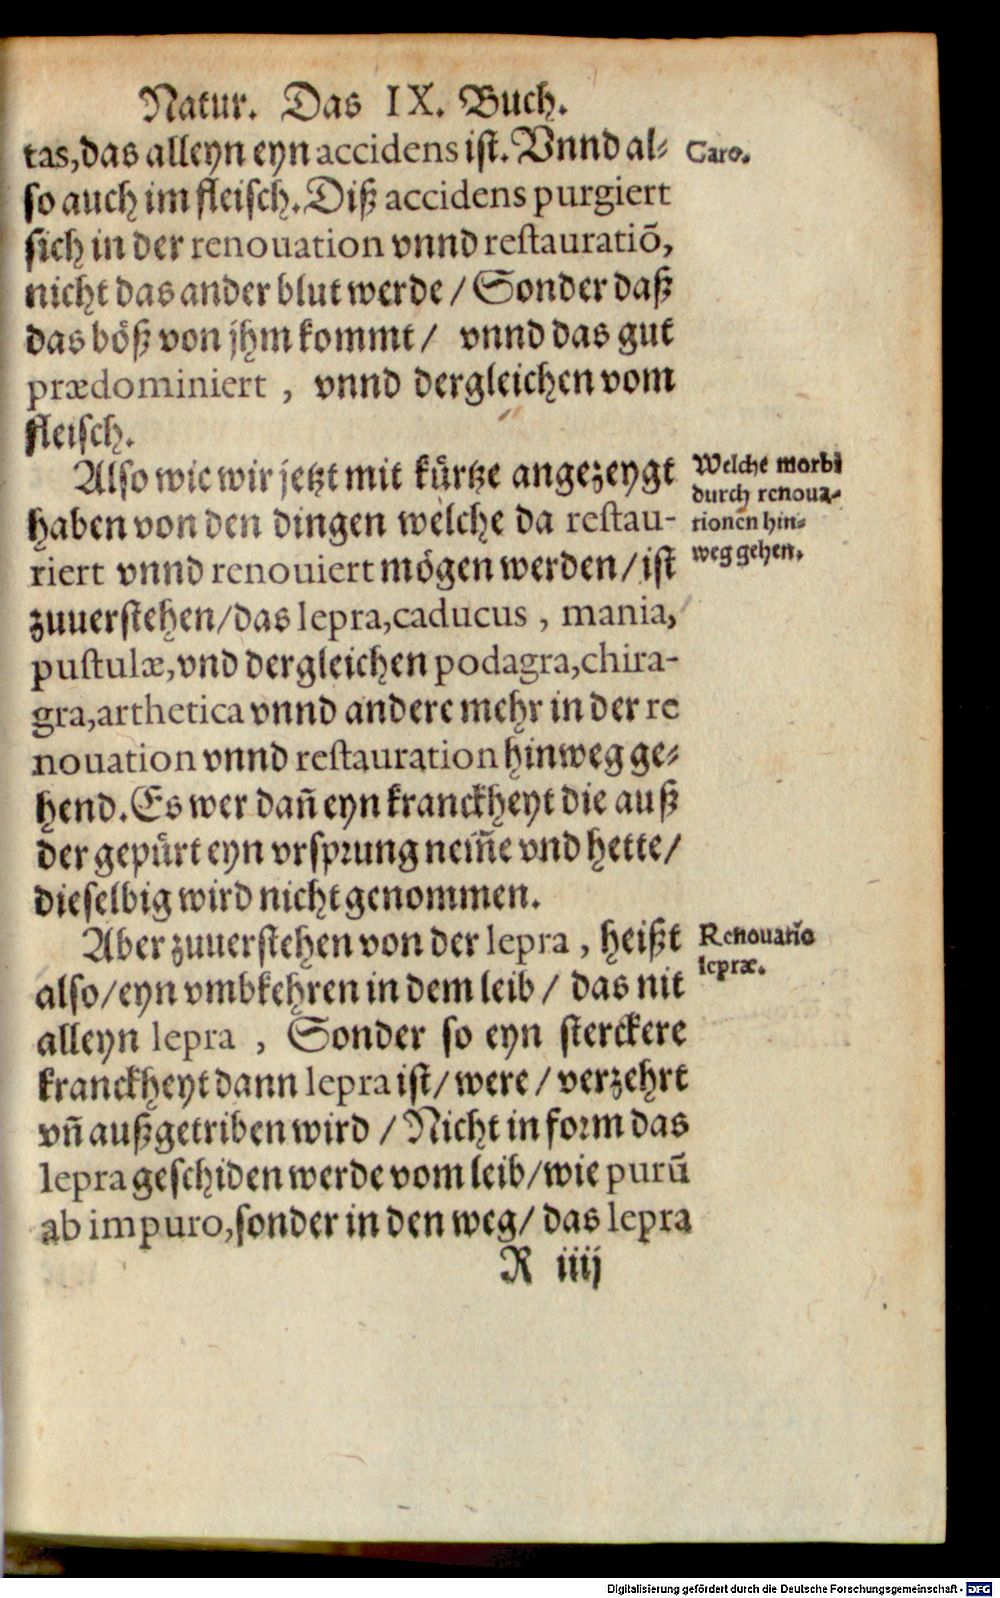 Natur. Das IX. Buch.
tas, das alleyn eyn accidens ist. Vnnd al-
so auch im fleisch. Diß accidens purgiert
sich in der renouation vnnd restauratiõ,
nicht das ander blut werde / Sonder daß
das böß von jhm kommt / vnnd das gut
prædominiert, vnnd dergleichen vom
fleisch.
Caro.
Also wie wir jetzt mit kürtze angezeygt
haben von den dingen welche da restau-
riert vnnd renouiert mögen werden / ist
zuuerstehen / das lepra, caducus, mania,
pustulæ, vnd dergleichen podagra, chira-
gra, arthetica vnnd andere mehr in der re
nouation vnnd restauration hinweg ge-
hend. Es wer dañ eyn kranckheyt die auß
der gepürt eyn vrsprung nem̃e vnd hette /
dieselbig wird nicht genommen.
Welche morbi
durch renoua-
tionen hin-
weg gehen.
Aber zuuerstehen von der lepra, heißt
also / eyn vmbkehren in dem leib / das nit
alleyn lepra, Sonder so eyn sterckere
kranckheyt dann lepra ist / were / verzehrt
vñ außgetriben wird / Nicht in form das
lepra geschiden werde vom leib / wie purũ
ab impuro, sonder in den weg / das lepra
Renouatio
lepræ.
R iiij
Digitalisierung gefördert durch die Deutsche Forschungsgemeinschaft - DFG